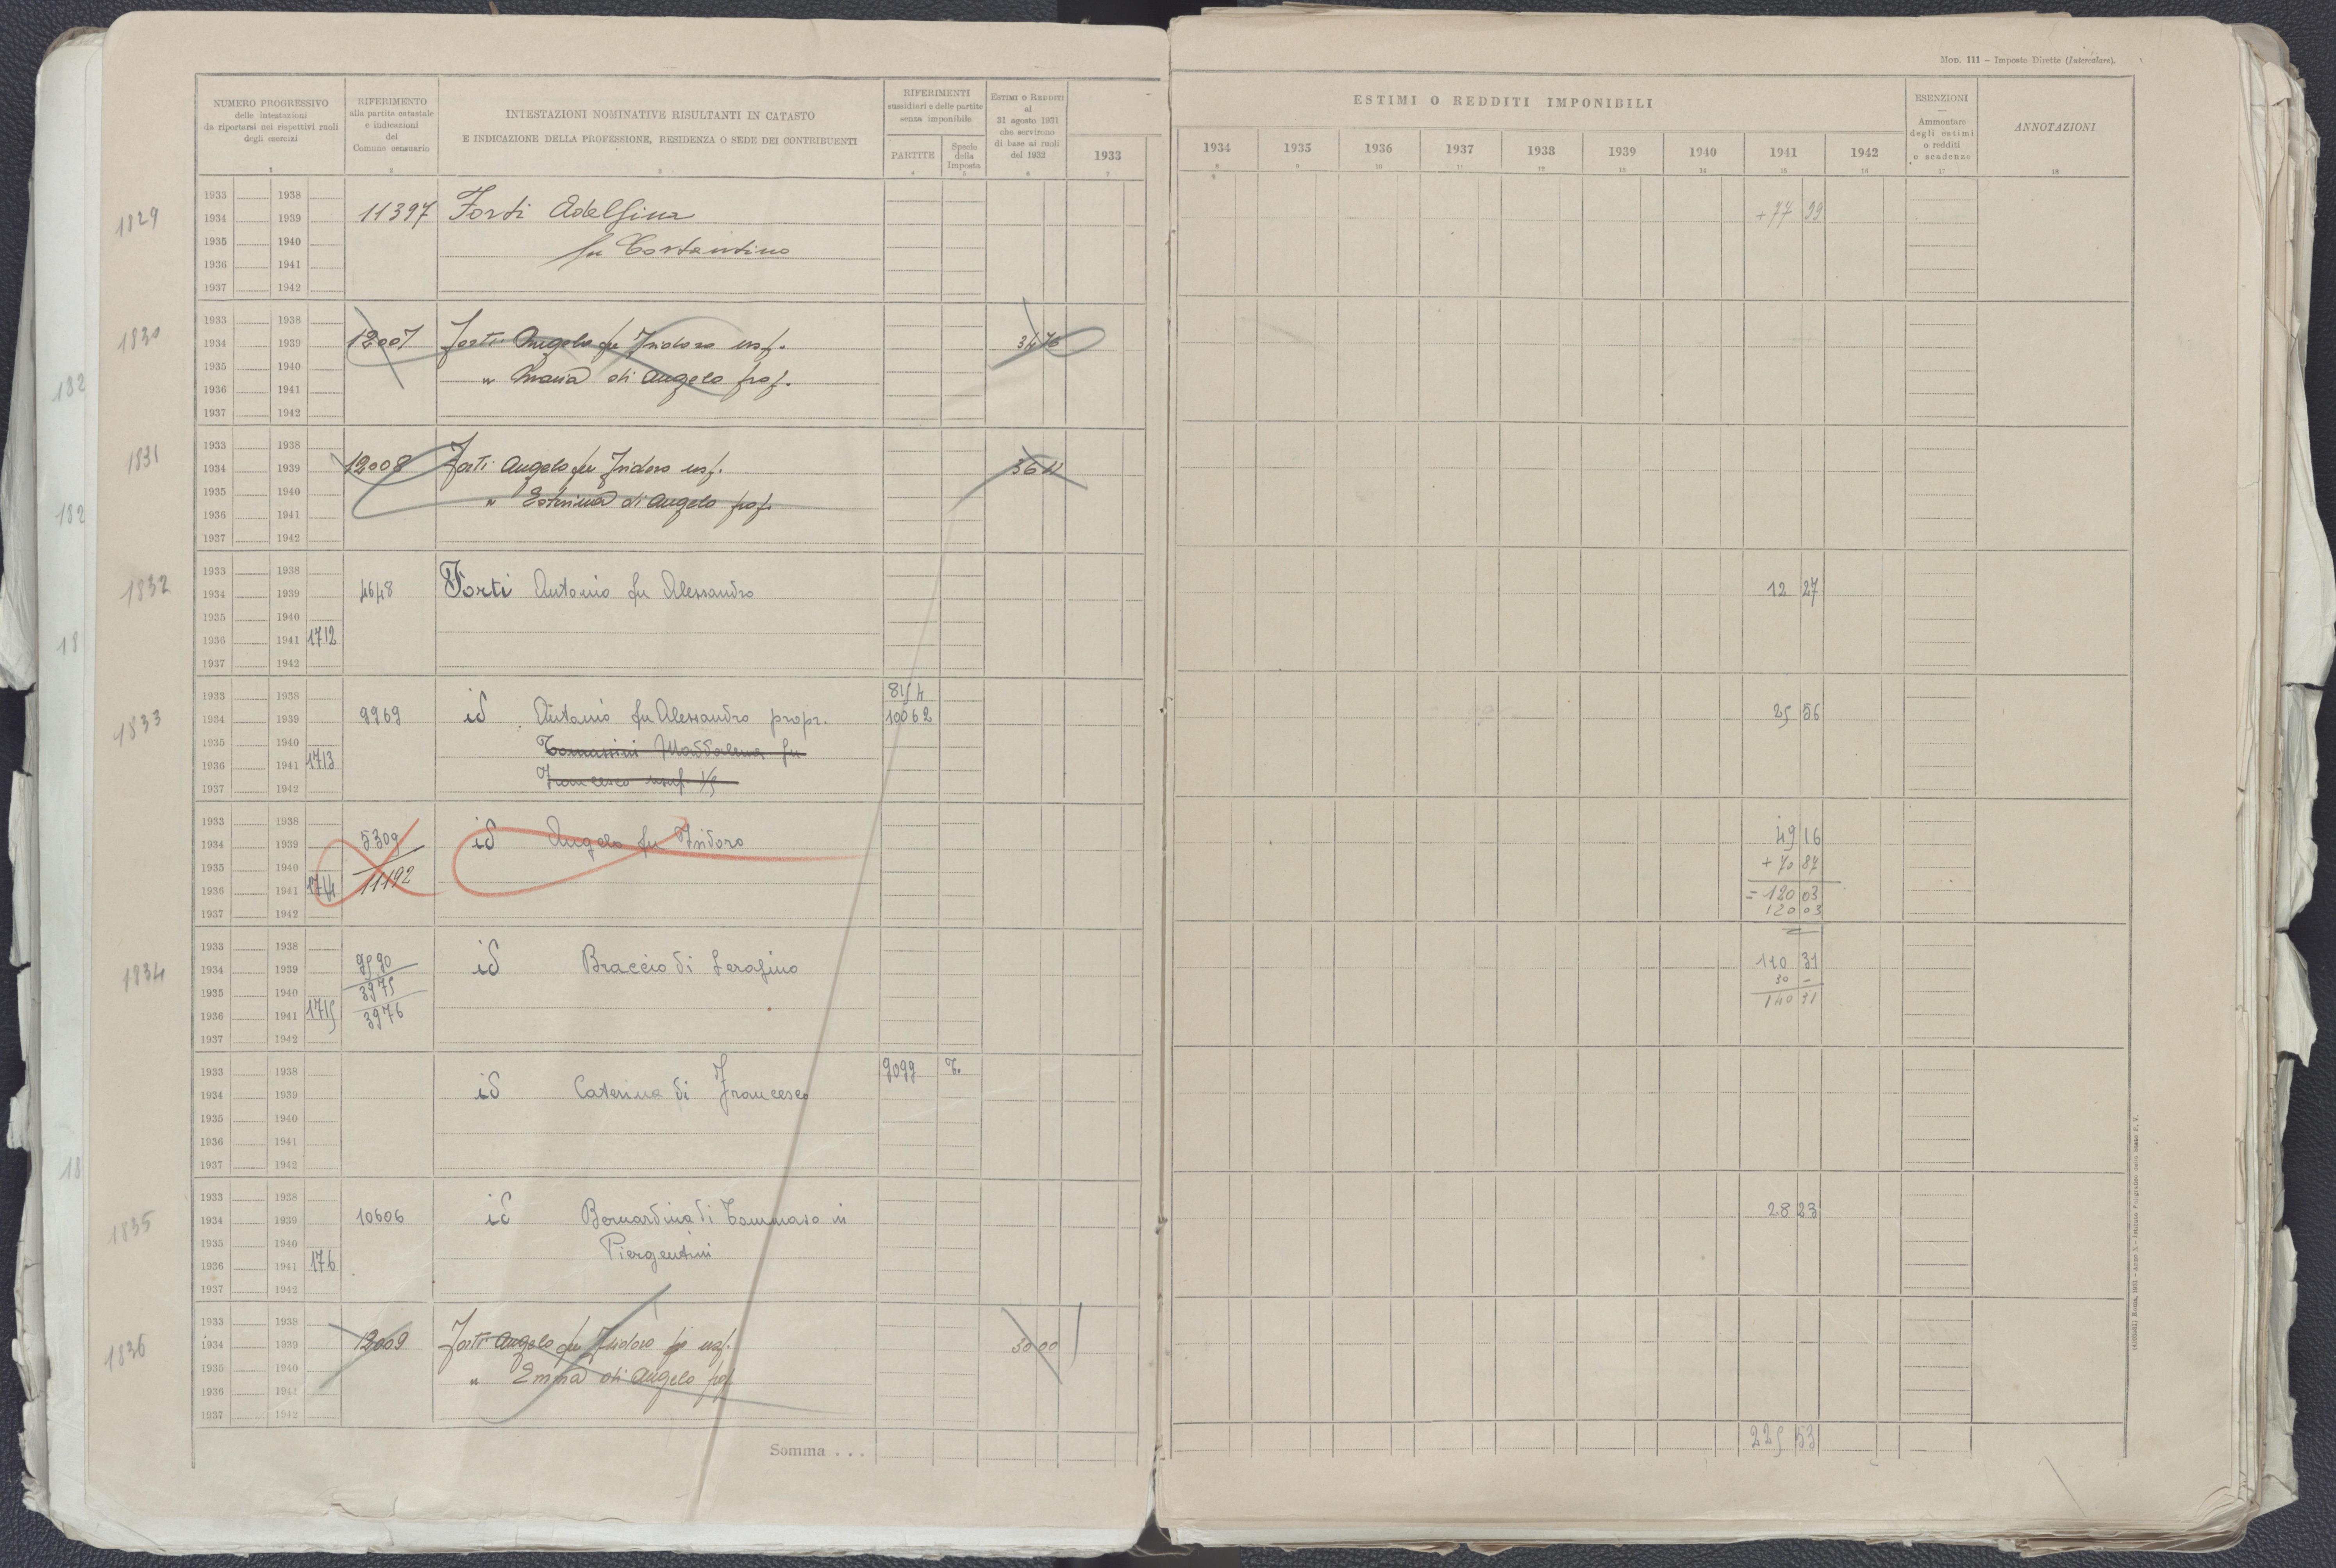 Mon. III - Imposte Dirette (Intercalare).
NUMERO PROGRESSIVO
delle intestazioni
da riportarsi nei rispettivi ruoli
degli esercizi
1
RIFERIMENTO
alla partita catastale
e indicazioni
del
Comune censuario
2
INTESTAZIONI NOMINATIVE RISULTANTI IN CATASTO
E INDICAZIONE DELLA PROFESSIONE, RESIDENZA O SEDE DEI CONTRIBUENTI
3
RIFERIMENTI
sussidiari o delle partite
senza imponibile
PARTITE
4
Specie
della
Imposta
5
ESTIMI O REDDITI
al
31 agosto 1931
che servirono
di base ai ruoli
del 1932
6
1933
7
ESTIMI O REDDITI IMPONIBILI
1934 1935 1936 1937 1938 1939 1940 1941 1942
8 9 10 11 12 13 14 15 16
ESENZIONI
Ammontare
degli estimi
o redditi
e scadenze
17
ANNOTAZIONI
18
1933 1938
1829 1934 1939 11397 Forti Adelfina + 77 99
1935 1940 fu Costantino
1936 1941
1937 1942
1933 1938
1830 1934 1939 12007 Forti Angelo fu Isidoro usf. 34 76
1935 1940 " Maria di Angelo prop.
182 1936 1941
1937 1942
1933 1938
1831 1934 1939 12008 Forti Angelo fu Isidoro usf. 36 11
1935 1940 " Esterina di Angelo prop.
182 1936 1941
1937 1942
1933 1938
1832 1934 1939 4648 Forti Antonio fu Alessandro 12 27
1935 1940
18 1936 1941 1712
1937 1942
1933 1938 8154
1833 1934 1939 9969 id Antonio fu Alessandro propr. 10062 25 56
1935 1940 Tomassini Maddalena fu
1936 1941 1713 Francesco usuf. 1/3
1937 1942
1933 1938
1934 1939 5309 id Angelo fu Isidoro 49 16
1935 1940 11192 + 70 87
1936 1941 1714 = 120 03
1937 1942 120 03
1933 1938
1834 1934 1939 9590 id Braccio di Serafino 110 31
1935 1940 3975 30 -
1936 1941 1715 3976 140 31
1937 1942
1933 1938 9099 T.
1934 1939 id Caterina di Francesco
1935 1940
1936 1941
18 1937 1942
1933 1938
1835 1934 1939 10606 id Bernardina di Tommaso in 28 23
1935 1940 Piergentini
1936 1941 176
1937 1942
1933 1938
1836 1934 1939 12009 Forti Angelo fu Isidoro usf. 50 00
1935 1940 " Emma di Angelo prop.
1936 1941
1937 1942
Somma . . . 225 53